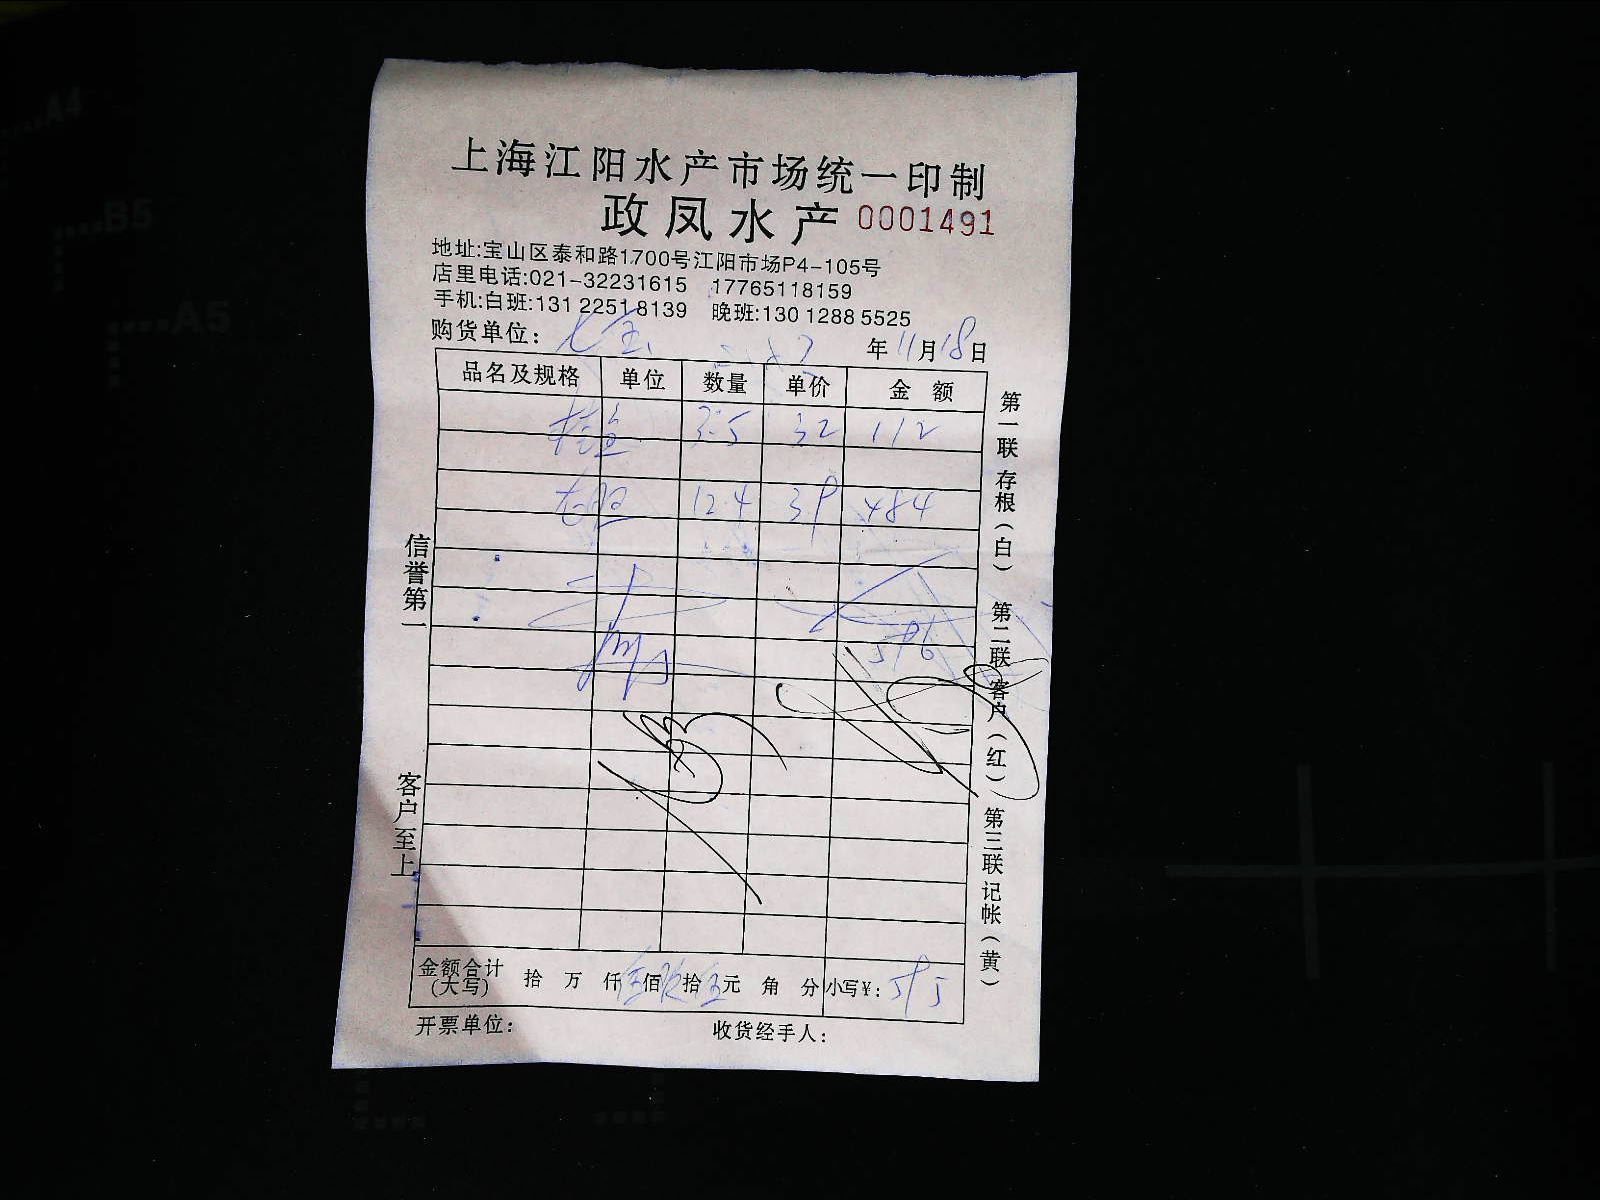 上海江阳水产市场统一印制
政凤水产 0001491
地址:宝山区泰和路1700号江阳市场P4-105号
店里电话:021-32231615 17765118159
手机:白班:131 2251 8139 晚班:130 1288 5525
购货单位: 七宝 年 11 月 18 日
品名及规格 单位 数量 单价 金额
3.5 32 112
12.4 39 484
596
金额合计(大写) 拾 万 仟 伍 佰 玖 拾 伍 元 角 分 小写¥: 595
开票单位: 收货经手人:
信誉第一
客户至上
第一联 存根(白) 第二联 客户(红) 第三联 记帐(黄)
A4
B5
A5